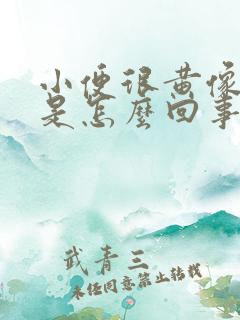 小便很黄像
是怎麼回事
武青三
未经同意禁止转载